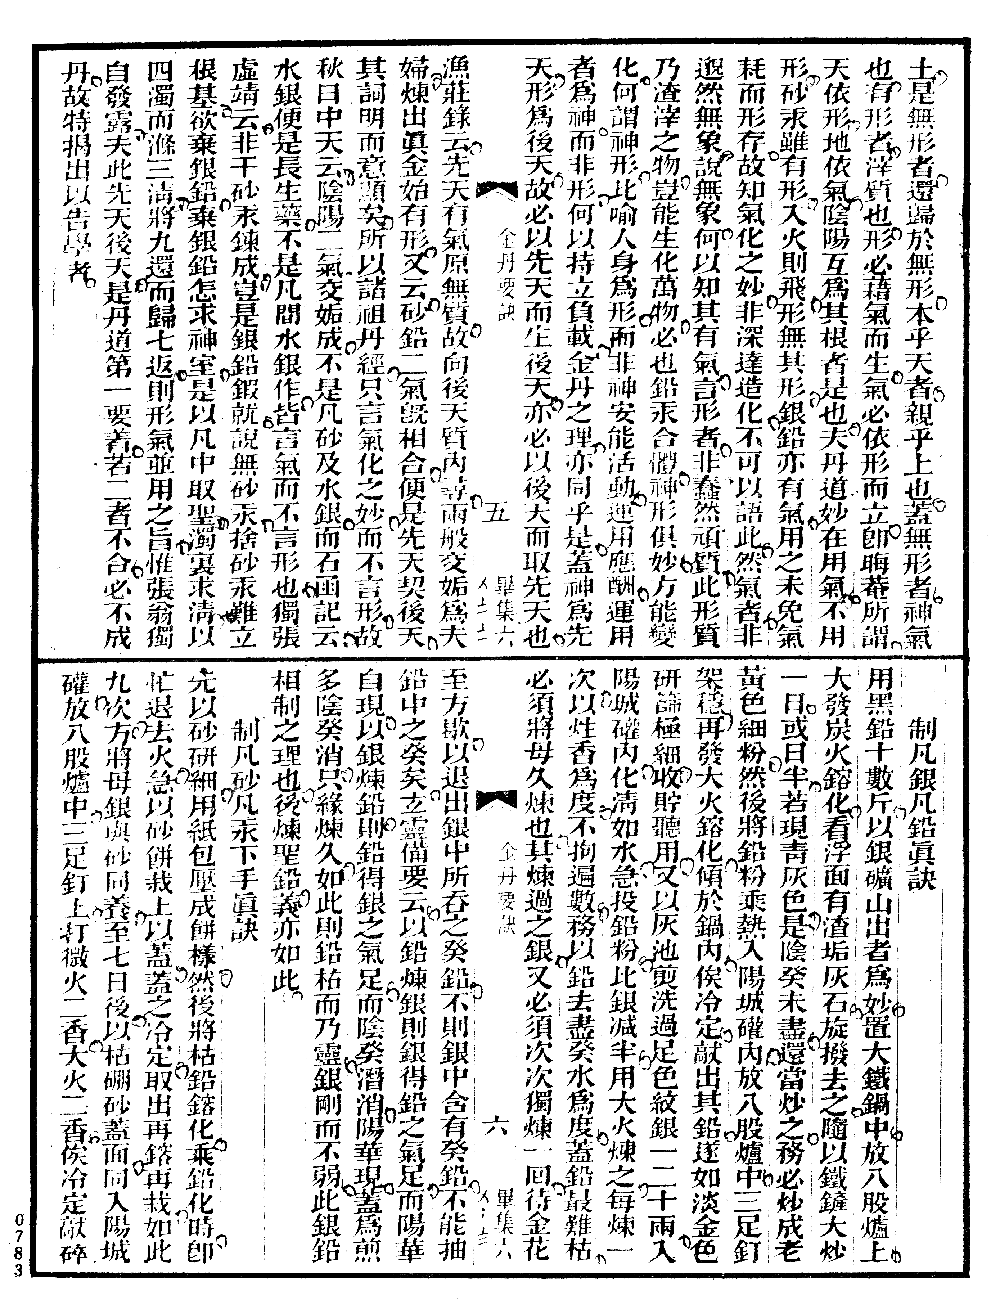 土是無形者還歸於無形本乎天者親乎上也蓋無形者神氣
也有形者滓質也形必藉氣而生氣必依形而立卽晦菴所謂
天依形地依氣陰陽互爲其根者是也夫丹道妙在用氣不用
形砂汞雖有形入火則飛形無其形銀鉛亦有氣用之未免氣
耗而形存故知氣化之妙非深達造化不可以語此然氣者非
邈然無象說無象何以知其有氣言形者非蠢然頑質此形質
乃渣滓之物豈能生化萬物必也鉛汞合體神形俱妙方能變
化何謂神形比喻人身爲形而非神安能活動運用應酬運用
者爲神而非形何以持立負載金丹之理亦同乎是蓋神爲先
天形爲後天故必以先天而生後天亦必以後天而取先天也
金丹要訣
五
畢集六
漁莊錄云先天有氣原無質故向後天質內尋兩般交姤爲夫
婦煉出眞金始有形又云砂鉛二氣旣相合便是先天契後天
其詞明而意顯矣所以諸祖丹經只言氣化之妙而不言形故
秋日中天云陰陽二氣交姤成不是凡砂及水銀而石函記云
水銀便是長生藥不是凡間水銀作皆言氣而不言形也獨張
虛靖云非干砂汞鍊成豈是銀鉛鍛就說無砂汞捨砂汞難立
根基欲棄銀鉛棄銀鉛怎求神室是以凡中取聖濁裏求清以
四濁而滌三清將九還而歸七返則形氣並用之旨惟張翁獨
自發露夫此先天後天是丹道第一要着若二者不合必不成
丹故特揭出以告學者
制凡銀凡鉛眞訣
用黑鉛十數斤以銀礦山出者爲妙置大鐵鍋中放八股爐上
大發炭火鎔化看浮面有渣垢灰石旋撥去之隨以鐵鏟大炒
一日或日半若現靑灰色是陰癸未盡還當炒之務必炒成老
黃色細粉然後將鉛粉乘熱入陽城確內放八股爐中三足釘
架穩再發大火鎔化傾於鍋內俟冷定敲出其鉛遂如淡金色
研篩極細收貯聽用又以灰池剪洗過足色紋銀一二十兩入
陽城確內化淸如水急投鉛粉比銀減半用大火煉之每煉一
次以炷香爲度不拘遍數務以鉛去盡癸水爲度蓋鉛最難枯
必須將母久煉也其煉過之銀又必須次次獨煉一回待金花
金丹要訣
六
畢集六
至方歇以退出銀中所吞之癸鉛不則銀中含有癸鉛不能抽
鉛中之癸矣玄靈備要云以鉛煉銀則銀得鉛之氣足而陽華
自現以銀煉鉛則鉛得銀之氣足而陰癸潛消陽華現蓋爲煎
多陰癸消只緣煉久如此則鉛枯而乃靈銀剛而不弱此銀鉛
相制之理也後煉聖鉛義亦如此
制凡砂凡汞下手眞訣
先以砂研細用紙包壓成餅樣然後將枯鉛鎔化乘鉛化時卽
忙退去火急以砂餅栽上以蓋蓋之冷定取出再鎔再栽如此
九次方將母銀與砂同養至七日後以枯硼砂蓋面同入陽城
確放八股爐中三足釘上打微火二香大火二香俟冷定敲碎
0783